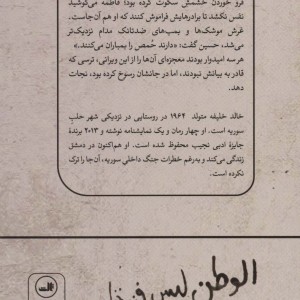 فرو خوردن خشمش سکوت کرده بود؛ فاطمه می‌کوشید
نفس نکشد تا برادرهایش فراموش کنند که او هم آن‌جاست.
غرش موشک‌ها و بمب‌های ضدتانک مدام نزدیک‌تر
می‌شد، حسین گفت: «دارند حُمص را بمباران می‌کنند.»
هر سه امیدوار بودند معجزه‌ای آن‌ها را از این ویرانی، ترسی که
قادر به بیانش نبودند، اما در جانشان رسوخ کرده بود، نجات
دهد.
خالد خلیفه متولد ۱۹۶۴ در روستایی در نزدیکی شهر حلبِ
سوریه است. او چهار رمان و یک نمایشنامه نوشته و ۲۰۱۳ برندهٔ
جایزهٔ ادبی نجیب محفوظ شده است. او هم‌اکنون در دمشق
زندگی می‌کند و به‌رغم خطرات جنگ داخلیِ سوریه، آن‌جا را ترک
نکرده است.
الوطن ليس